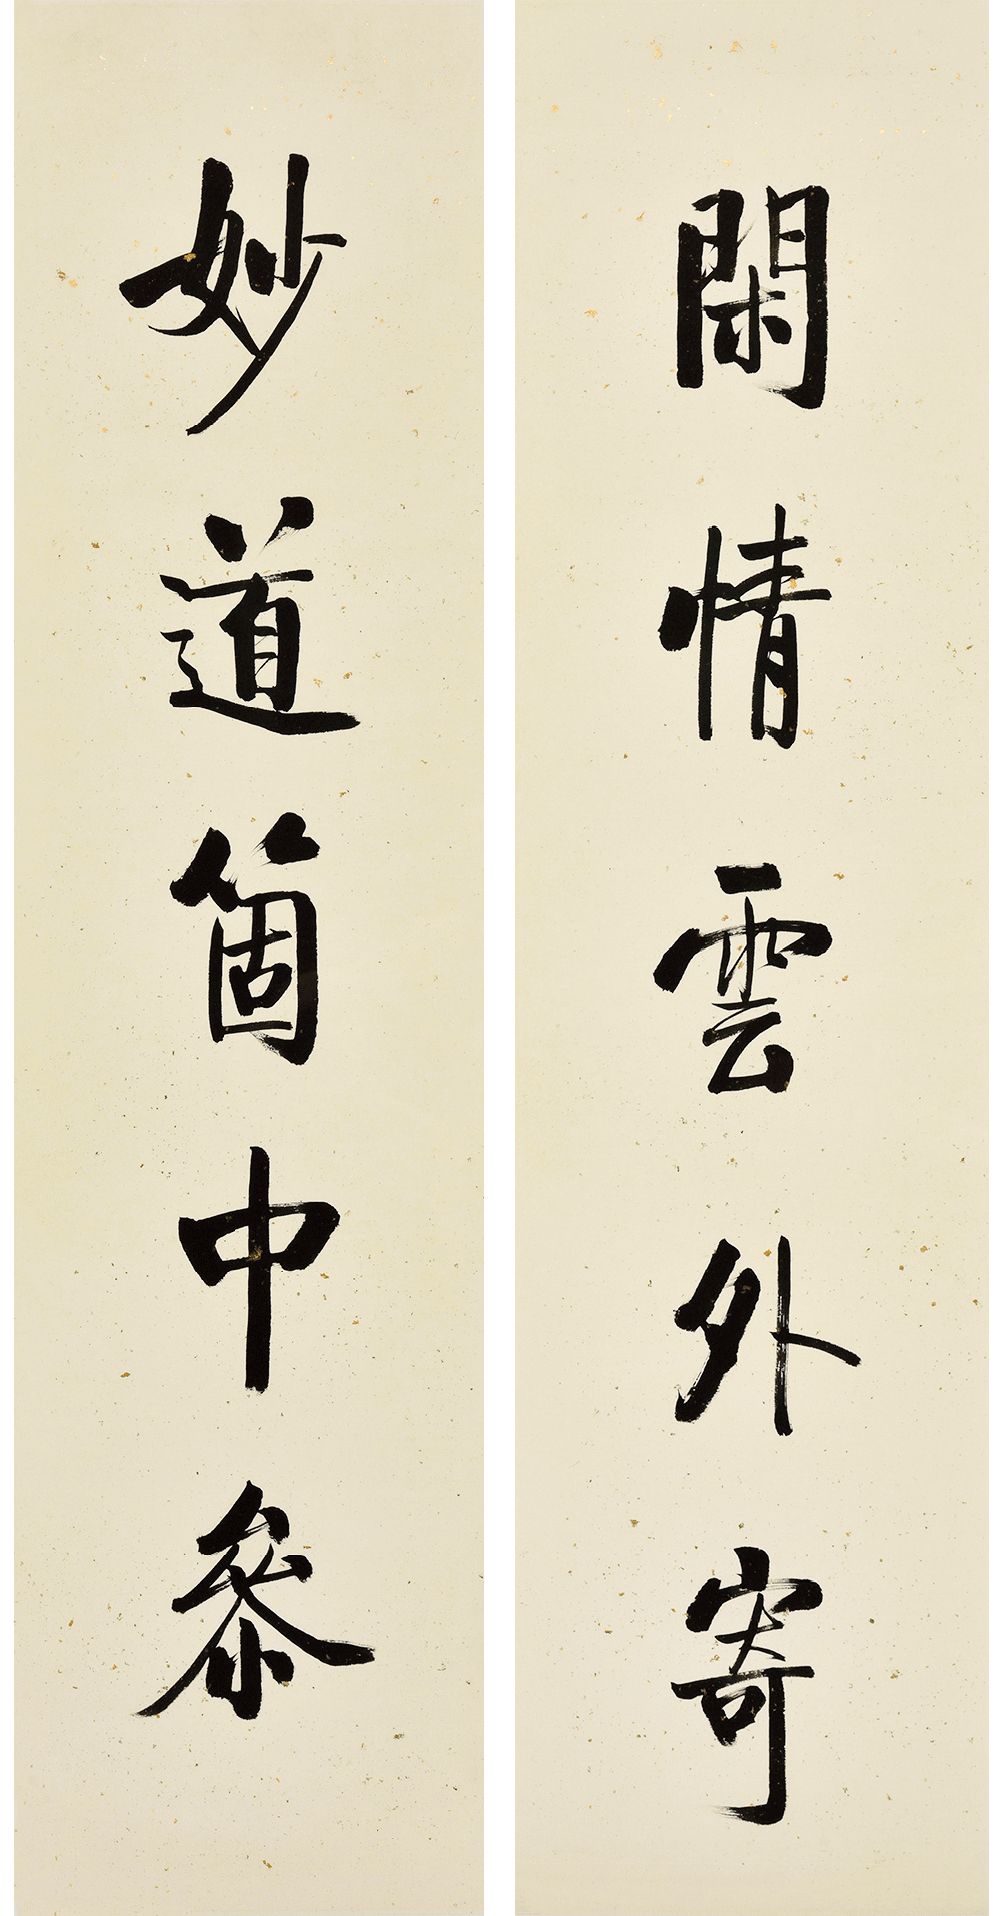 閑情雲外寄
妙道箇中參